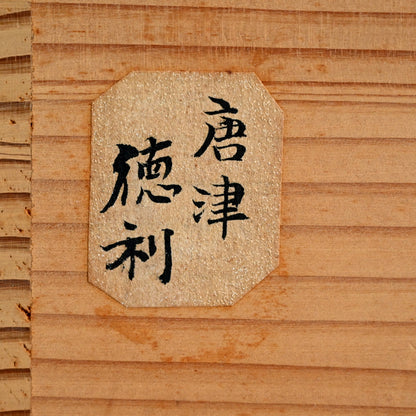 唐津
徳利